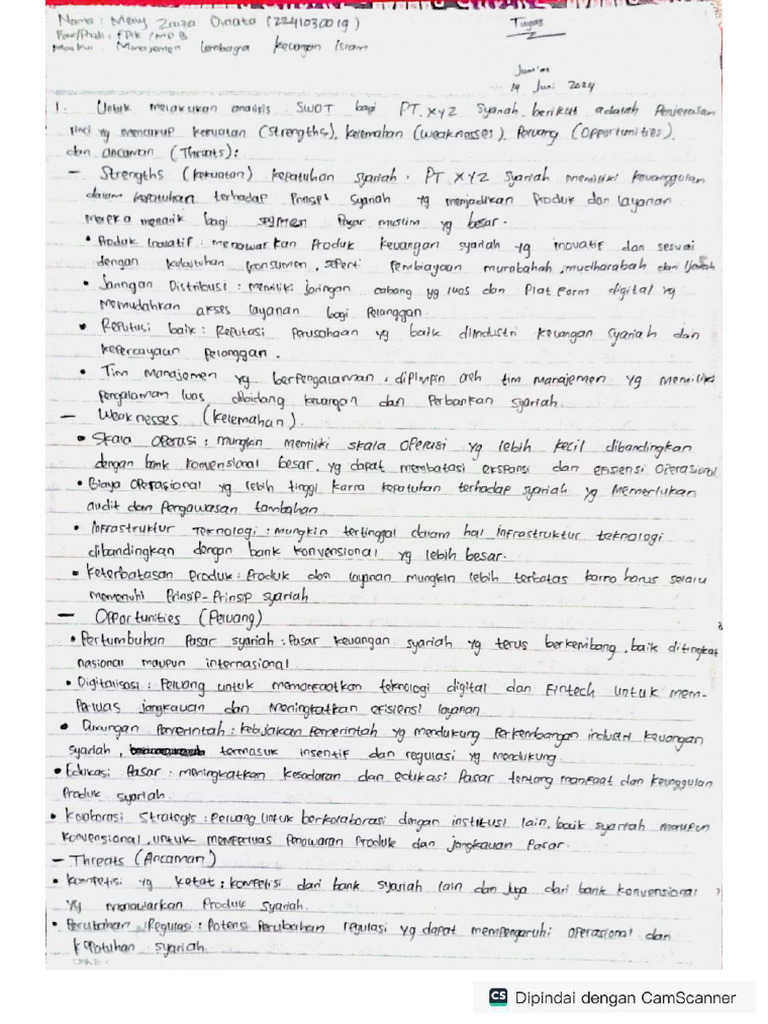 Nama : Meny Zaiza Dinata (2241030019)
Fak/Prodi : FDIK / MD B
Matkul : Manajemen Lembaga keuangan Islam
Tugas
Jum'at
14 Juni 2024
1. Untuk melakukan analisis SWOT bagi PT. XYZ Syariah, berikut adalah Penjelasan
rinci yg mencakup kekuatan (Strengths), kelemahan (weaknesses), Peluang (Opportunities),
dan ancaman (Threats):
– Strengths (kekuatan) kepatuhan syariah. PT XYZ Syariah memiliki keunggulan
dalam kepatuhan terhadap Prinsip Syariah yg menjadikan Produk dan layanan
mereka menarik bagi segmen Pasar muslim yg besar.
• Produk Inovatif : menawarkan Produk keuangan syariah yg inovatif dan sesuai
dengan kebutuhan konsumen, seperti Pembiayaan murabahah, mudharabah dan Ijarah
• Jaringan Distribusi : memiliki jaringan cabang yg luas dan Platform digital yg
Memudahkan akses layanan bagi Pelanggan.
• Reputasi baik : Reputasi Perusahaan yg baik diindustri keuangan syariah dan
kepercayaan Pelanggan.
• Tim Manajemen yg berpengalaman, dipimpin oleh tim manajemen yg memiliki
pengalaman luas dibidang keuangan dan Perbankan syariah.
– Weaknesses (kelemahan).
• Skala Operasi : mungkin memiliki skala operasi yg lebih kecil dibandingkan
dengan bank konvensional besar, yg dapat membatasi ekspansi dan efisiensi Operasional
• Biaya operasional yg lebih tinggi karna kepatuhan terhadap syariah yg Memerlukan
audit dan Pengawasan tambahan
• Infrastruktur Teknologi : mungkin tertinggal dalam hal infrastruktur teknologi
dibandingkan dengan bank konvensional yg lebih besar.
• Keterbatasan Produk : Produk dan layanan mungkin lebih terbatas karna harus selalu
memenuhi Prinsip-Prinsip syariah
– Opportunities (Peluang)
• Pertumbuhan Pasar syariah : Pasar keuangan syariah yg terus berkembang, baik ditingkat
nasional maupun internasional
• Digitalisasi : Peluang untuk memanfaatkan teknologi digital dan Fintech untuk mem-
Perluas jangkauan dan meningkatkan efisiensi layanan
• Dukungan Pemerintah : kebijakan Pemerintah yg mendukung Perkembangan industri keuangan
syariah, termasuk insentif dan regulasi yg mendukung.
• Edukasi Pasar : meningkatkan kesadaran dan edukasi Pasar tentang manfaat dan keunggulan
Produk syariah.
• Kolaborasi Strategis : Peluang untuk berkolaborasi dengan institusi lain, baik syariah maupun
konvensional, untuk memperluas Penawaran Produk dan jangkauan Pasar.
– Threats (Ancaman)
• kompetisi yg ketat : kompetisi dari bank syariah lain dan juga dari bank konvensional
yg menawarkan Produk syariah.
• Perubahan Regulasi : Potensi Perubahan regulasi yg dapat mempengaruhi operasional dan
kepatuhan syariah.
CS Dipindai dengan CamScanner